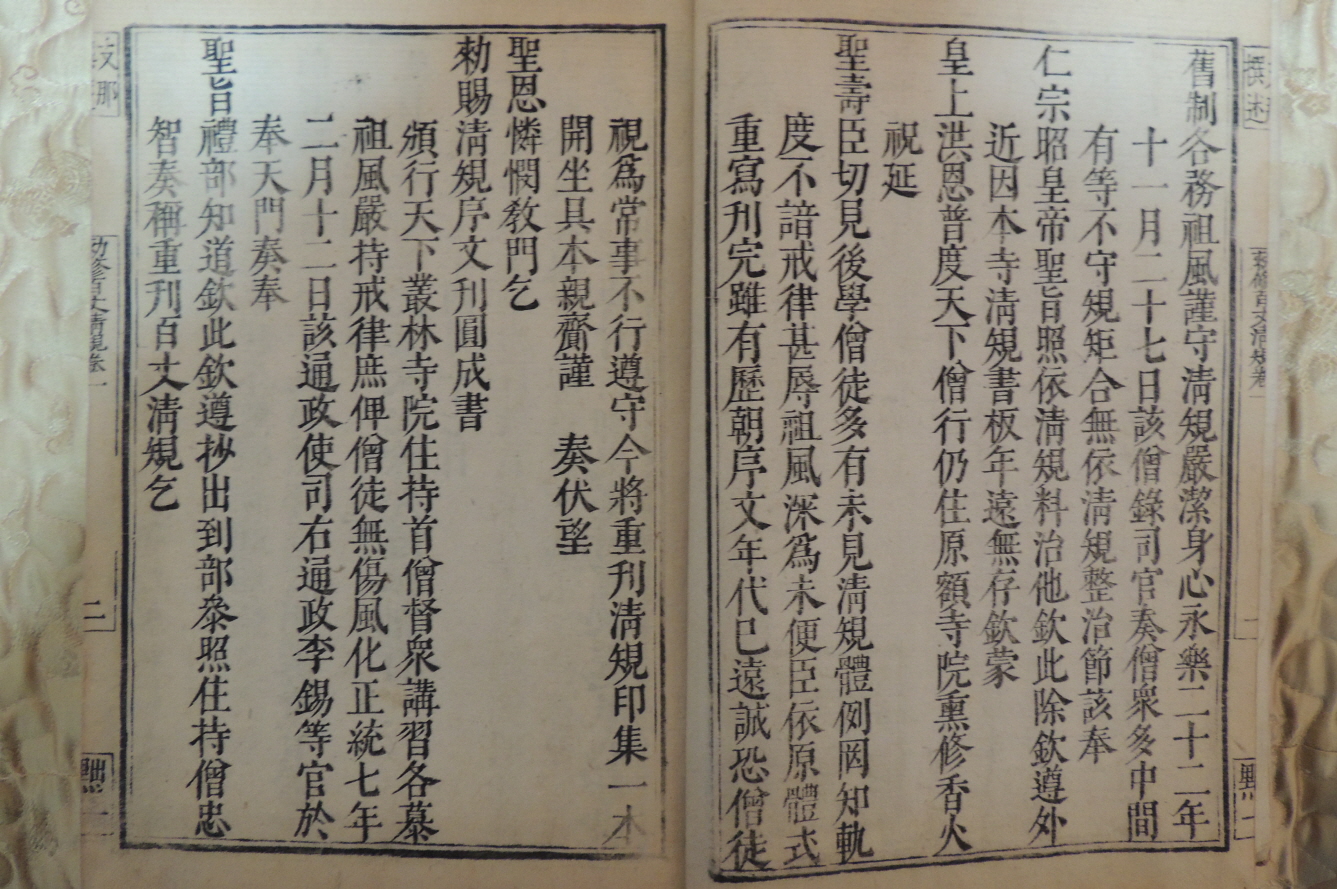 舊制各務祖風謹守清規嚴潔身心永樂二十二年
十一月二十七日該僧錄司官奏僧衆多中間
有等不守規矩合無依清規整治節該奉
仁宗昭皇帝聖旨照依清規料治他欽此除欽遵外
近因本寺清規書板年遠無存欽蒙
皇上洪恩普度天下僧行仍住原額寺院熏修香火
祝延
聖壽臣切見後學僧徒多有未見清規體例罔知軌
度不諳戒律甚辱祖風深爲未便臣依原體式
重寫刋完雖有歷朝序文年代已遠誠恐僧徒
視爲常事不行遵守今將重刋清規印集一本
開坐具本親齎謹 奏伏望
聖恩憐憫敎門乞
勑賜清規序文刋圓成書
頒行天下叢林寺院住持首僧督衆講習各慕
祖風嚴持戒律庶俾僧徒無傷風化正統七年
二月十二日該通政使司右通政李錫等官於
奉天門奏奉
聖旨禮部知道欽此欽遵抄出到部叅照住持僧忠
智奏稱重刋百丈清規乞
撰述
勑修百丈清規卷一
二
黓一
支那
勑修百丈清規卷一
二
黓一